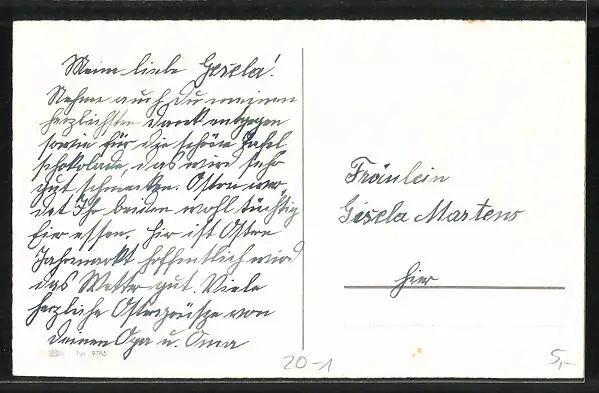 Meine liebe Gisela!
Nehme auch Du meinen
herzlichsten dank entgegen
sowie für die schöne Tafel
schokolade, das wird sehr
gut schmecken. Ostern wer,
det Ihr beiden wohl tüchtig
Eier essen. hier ist Oster
Jahrmarkt hoffentlich wird
das Wetter gut. Viele
herzliche Ostergrüsze von
deinen Opa u. Oma
Nr. 9785
Fräulein
Gisela Martens
hier
20-1
5,-